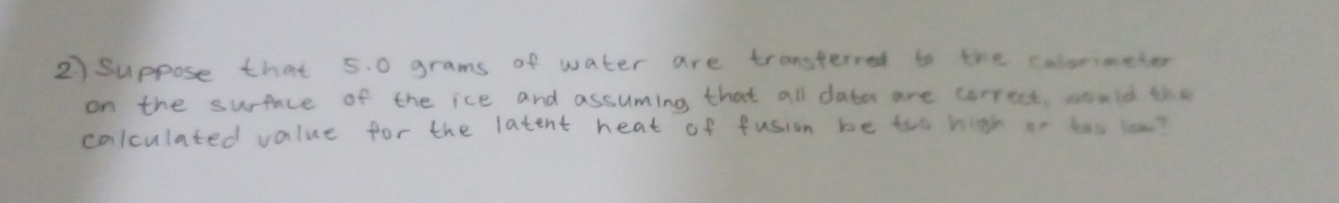 2.) Suppose that 5.0 grams of water are transferred to the calorimeter
on the surface of the ice and assuming that all data are correct, would the
calculated value for the latent heat of fusion be too high or too low?